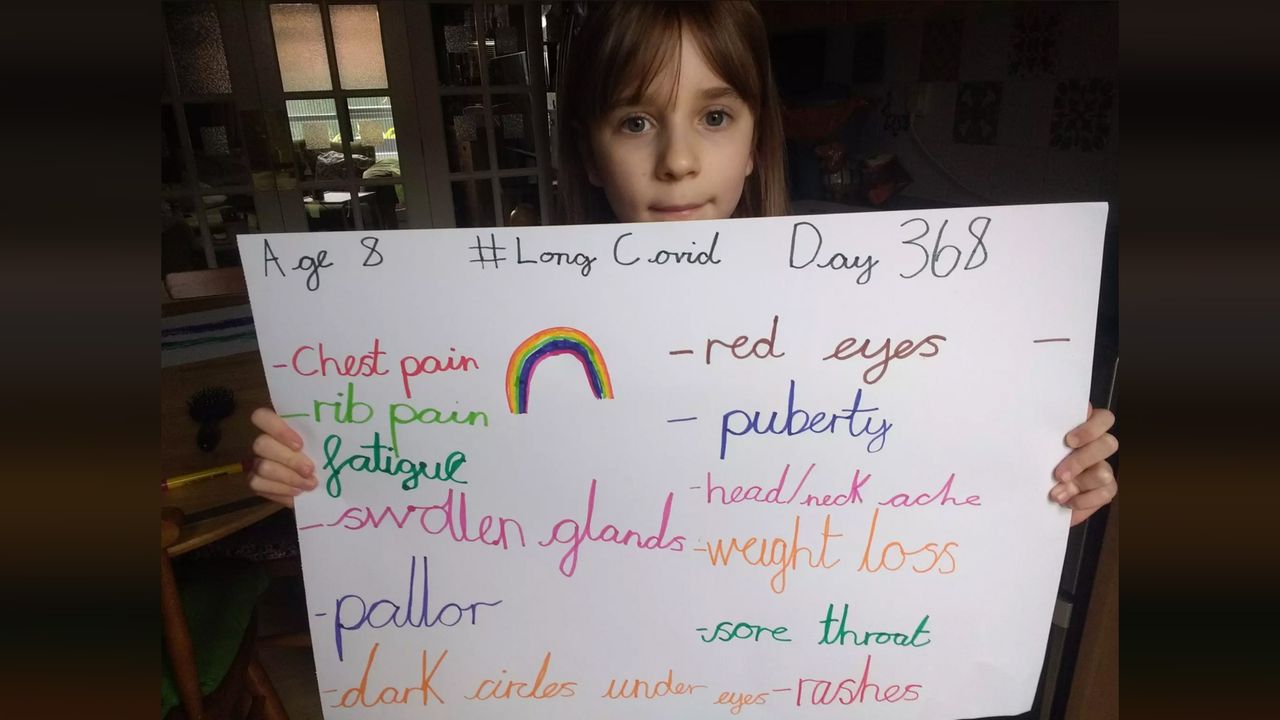 Age 8 #Long Covid Day 368
-Chest pain
-rib pain
fatigue
-swollen glands
-pallor
-dark circles under eyes
-red eyes -
- puberty
-head/neck ache
-weight loss
-sore throat
-rashes